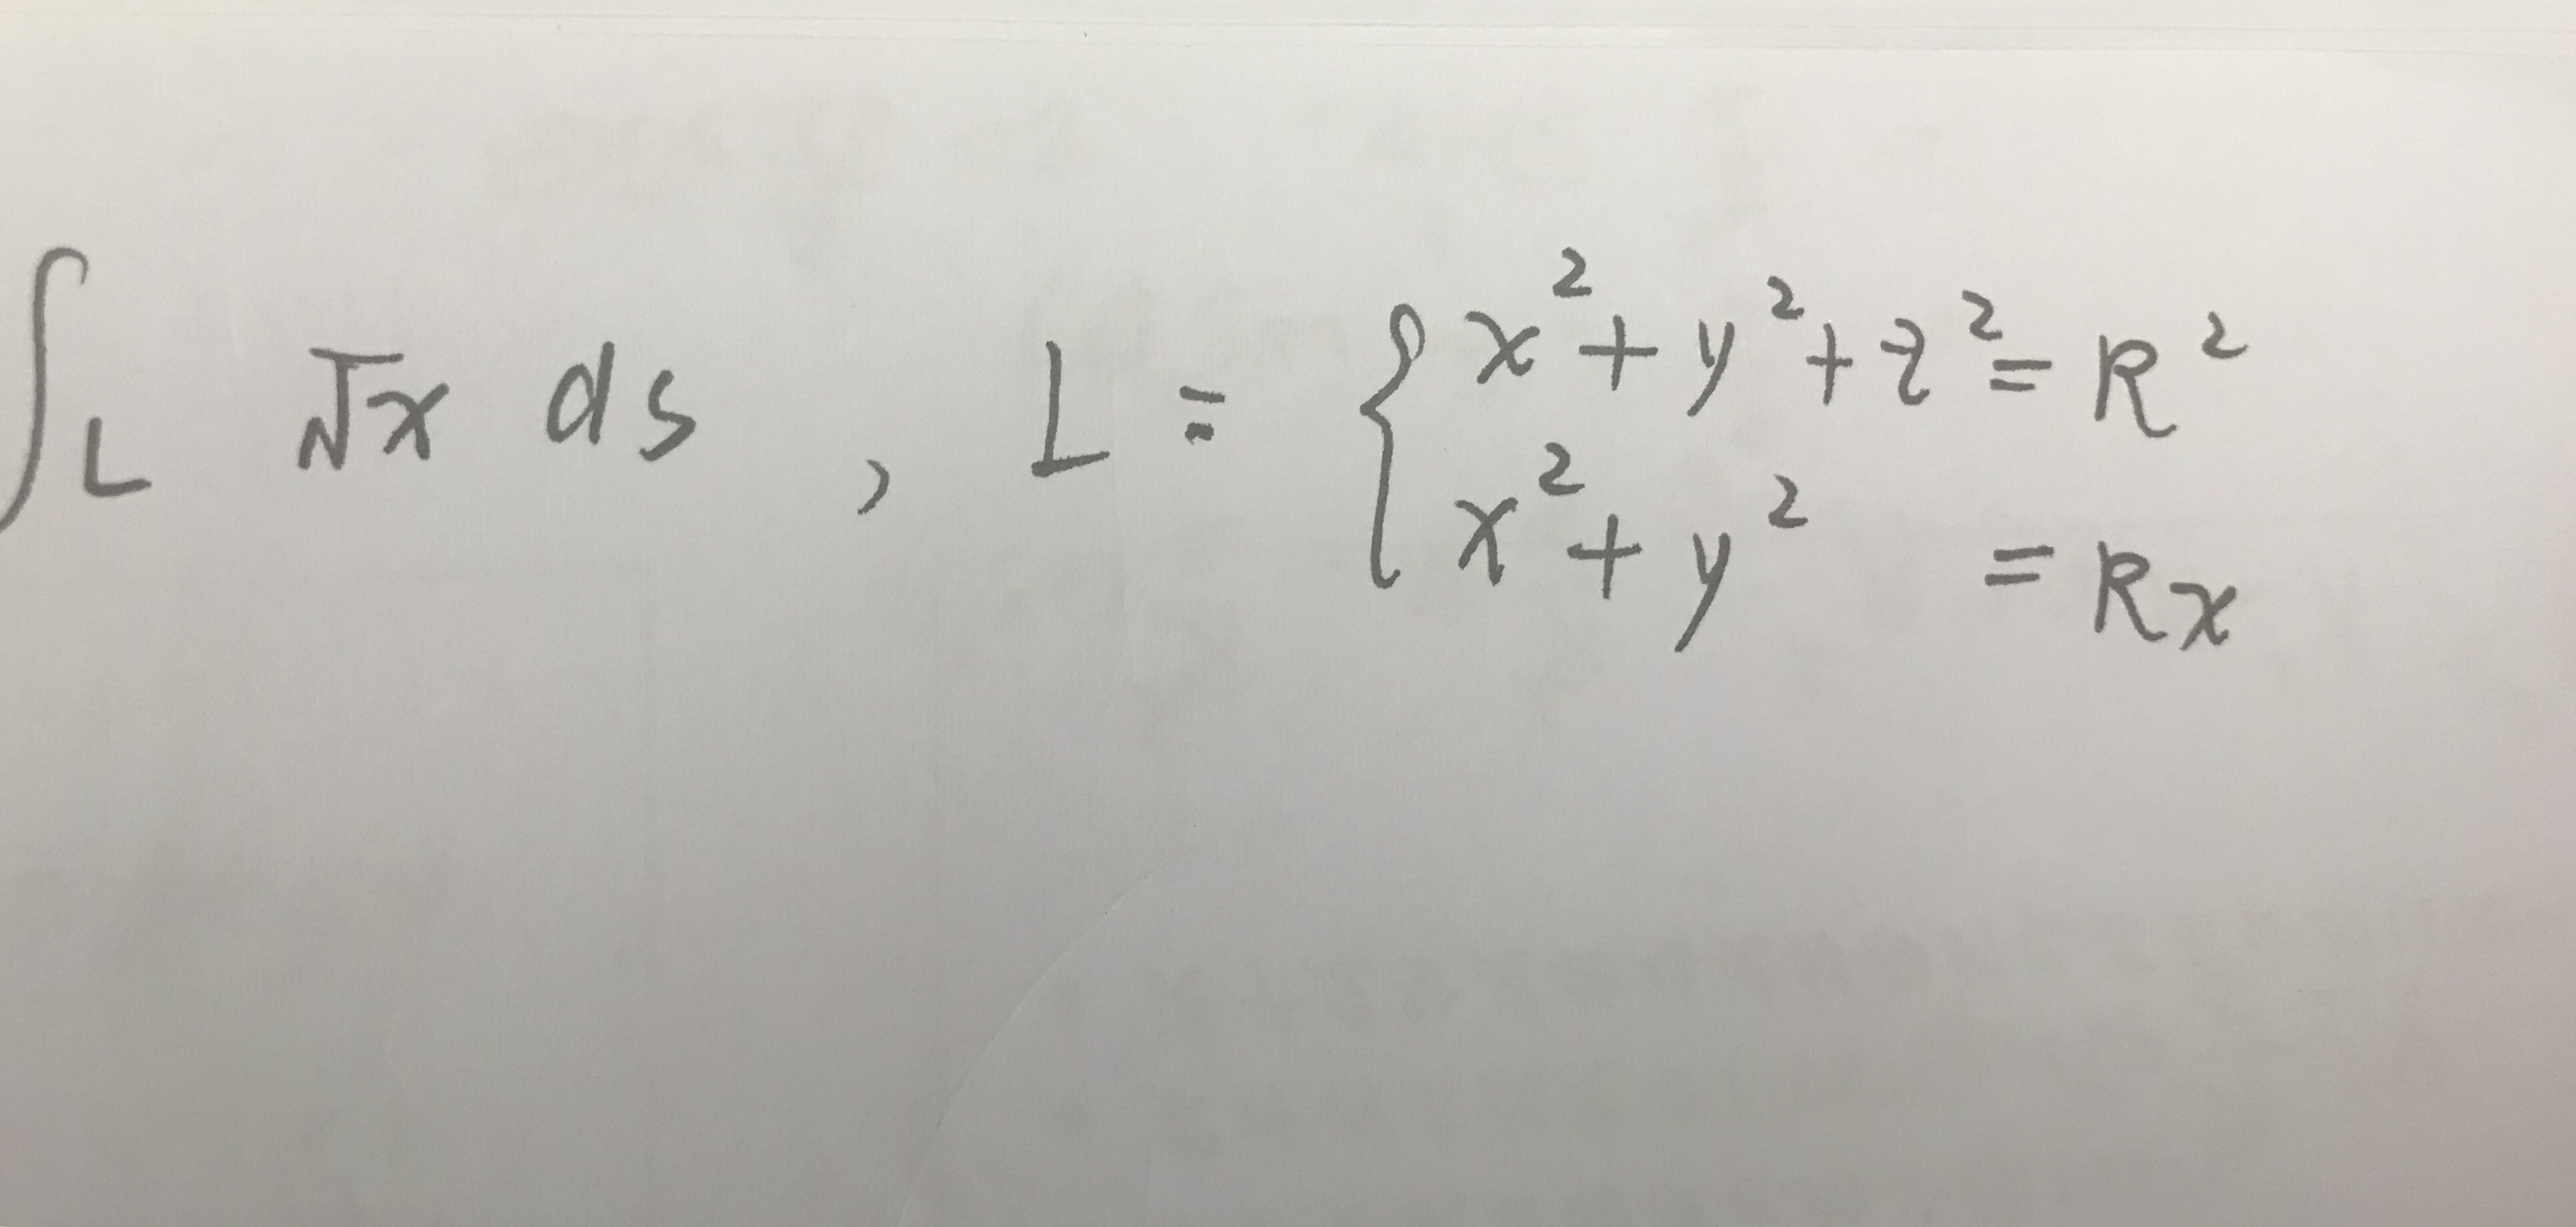 ∫_L √x ds , L = { x² + y² + z² = R²
x² + y² = Rx